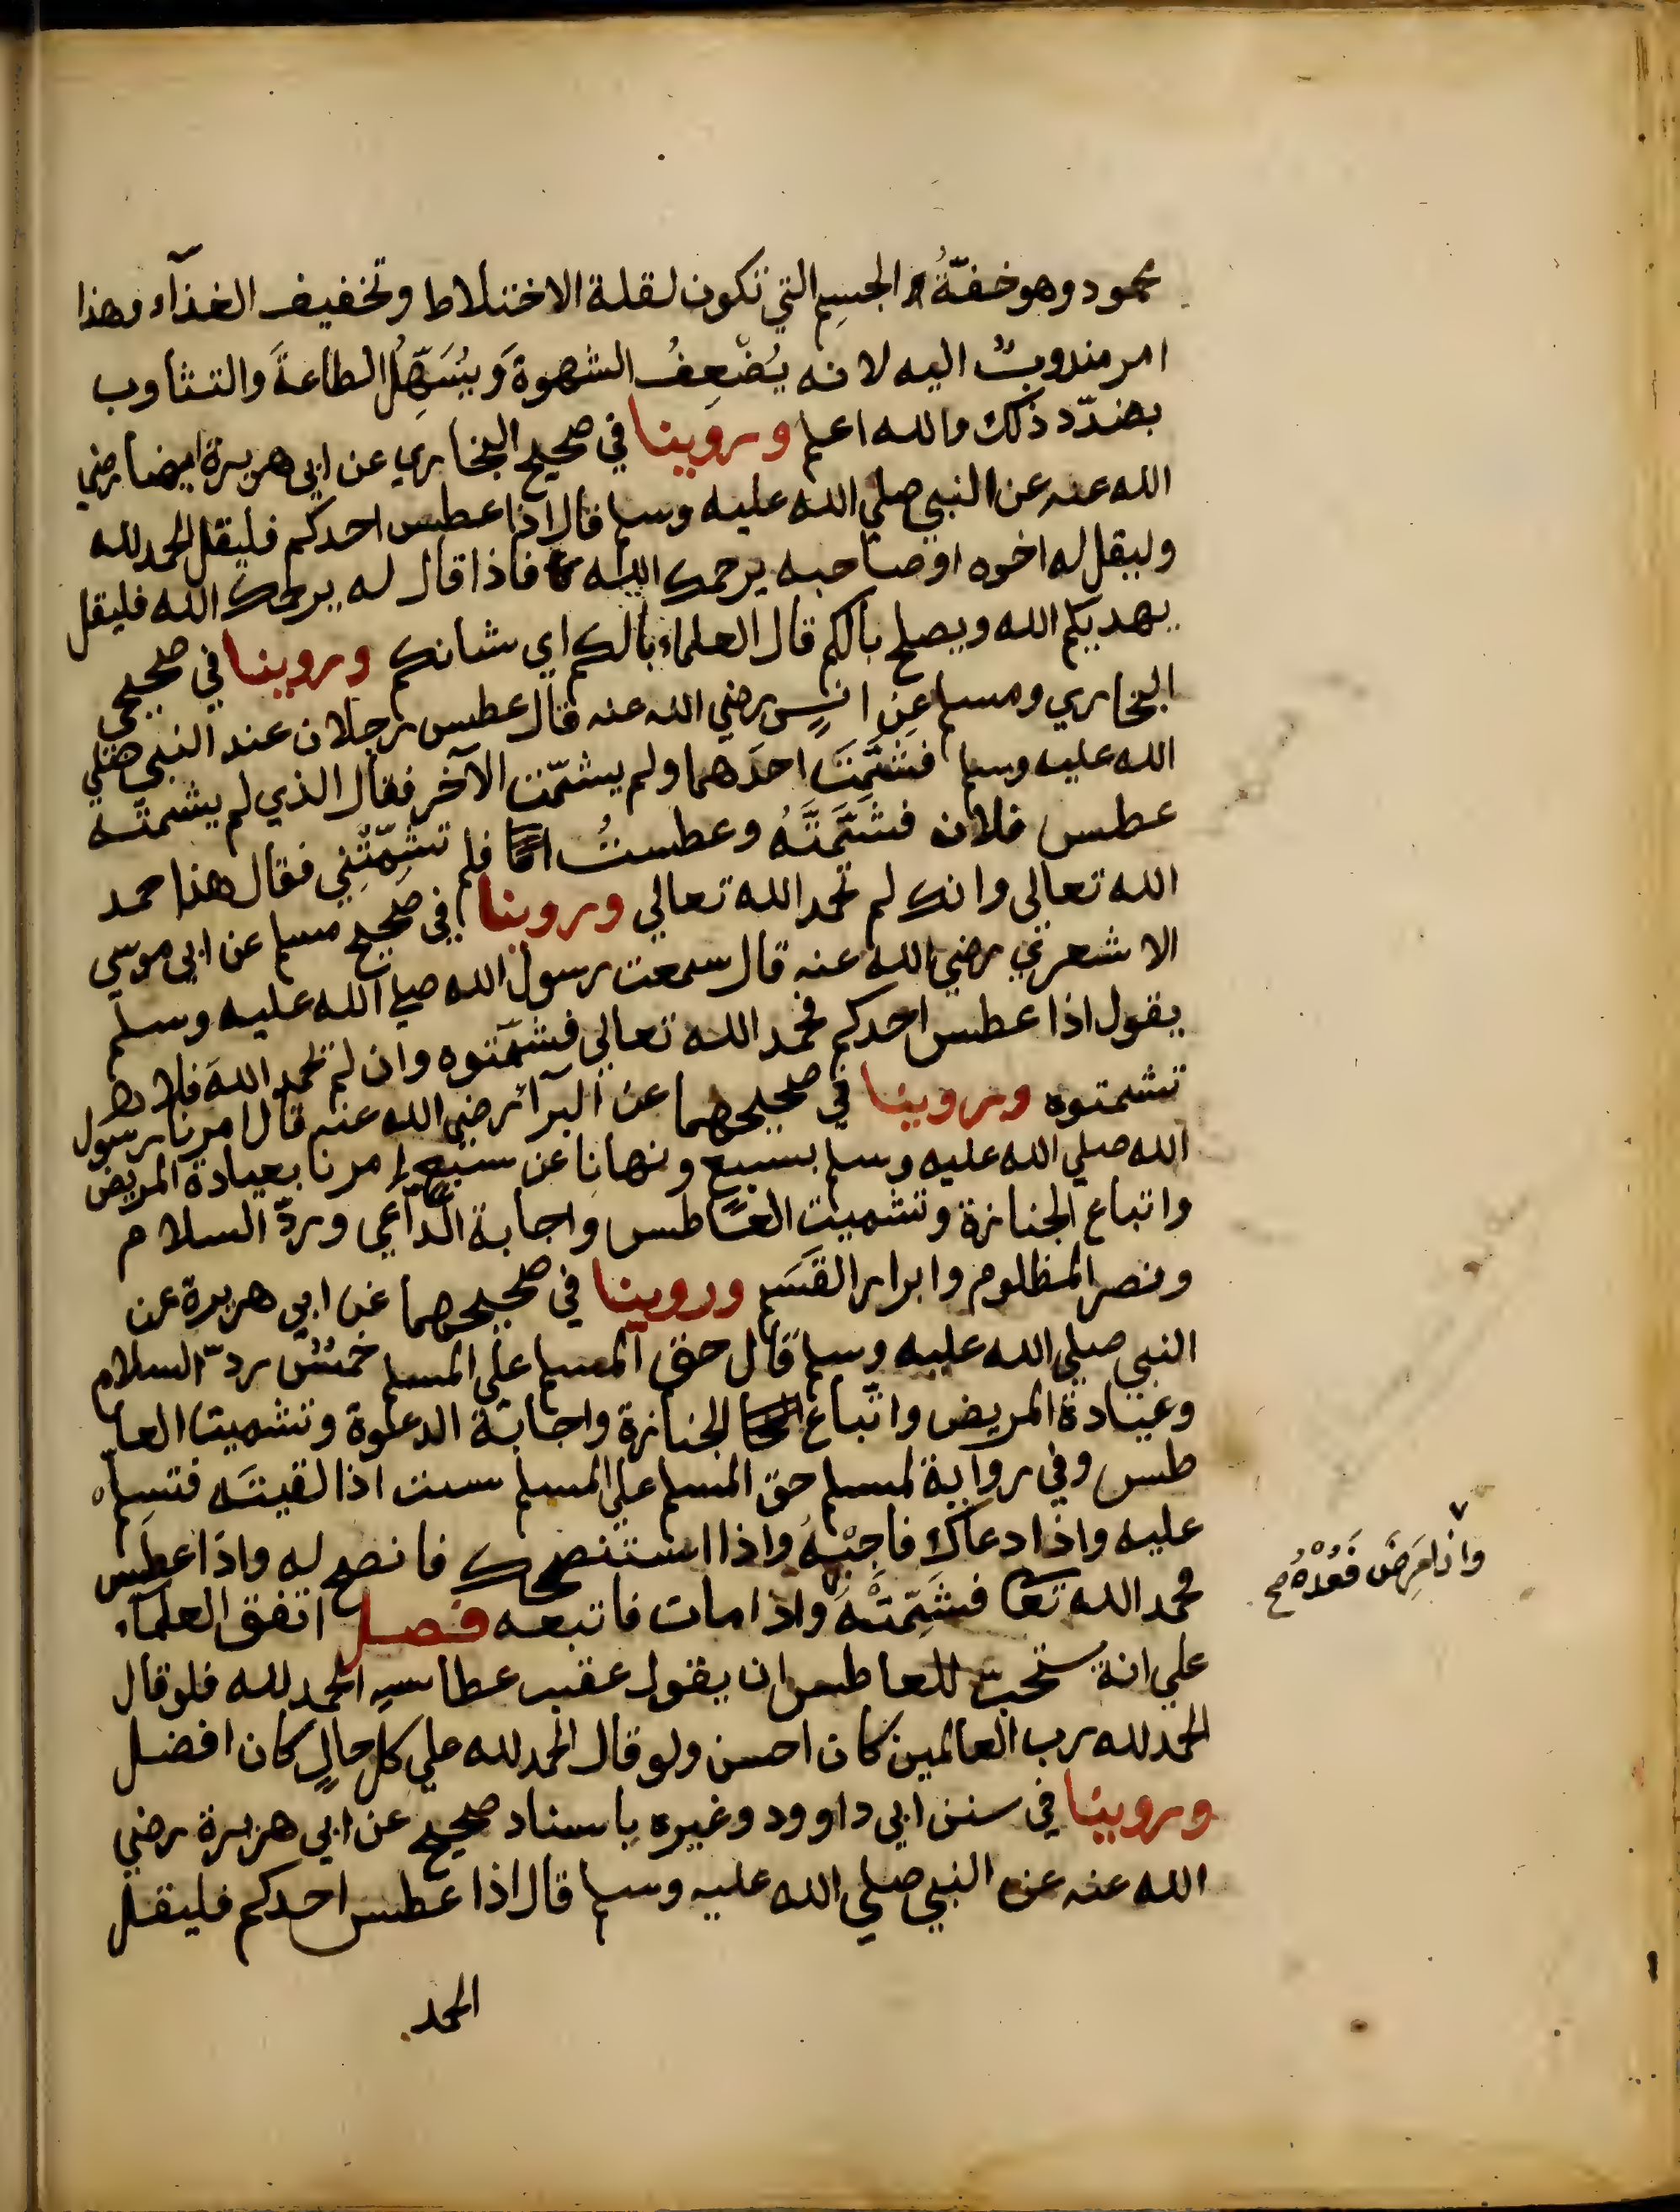 محمود وهو خفّةُ الجسِم التي تكون لقلة الاختلاط وتخفيف الغذآء وهذا
امر مندوبٌ اليه لانه يُضْعِفُ الشهوةَ وَيُسَهِّلُ الطاعةَ والتثاوب
بضدّد ذلك والله اعلم وروينا في صحيح البخاري عن ابي هريرة ايضا رضي
الله عنه عن النبي صلي الله عليه وسلم قال اذا عطس احدكم فليقل الحمد لله
وليقل له اخوه او صاحبه يرحمك الله فاذا قال له يرحمك الله فليقل
يهديكم الله ويصلح بالكم قال العلماء بالكم اي شانكم وروينا في صحيحي
البخاري ومسلم عن انسٍ رضي الله عنه قال عطس رجلان عند النبي صلي
الله عليه وسلم فشمَّتَ احدَهما ولم يشمّت الآخر فقال الذي لم يشمته
عطس فلان فشمَّتَّهُ وعطستُ انا فلم تشمِّتْنِي فقال هذا حمد
الله تعالى وانك لم تحمد الله تعالي وروينا في صحيح مسلم عن ابي موسي
الاشعري رضي الله عنه قال سمعت رسول الله صلي الله عليه وسلّم
يقول اذا عطس احدكم فحمد الله تعالي فشمّتوه وان لم يحمد اللهَ فلا
تشمتوه وروينا في صحيحهما عن البرآء رضي الله عنه قال امرنا رسول
الله صلي الله عليه وسلم بسبع ونهانا عن سبع امرنا بعيادة المريض
واتباع الجنازة وتشميت العاطس واجابة الدّاعي وردّ السلام
ونصر المظلوم وابرار القَسَم وروينا في صحيحهما عن ابي هريرة عن
النبي صلي الله عليه وسلم قال حق المسلم علي المسلم خمسٌ ردّ السلام
وعيادة المريض واتّباع الجنازة واجابة الدعوة وتشميت العا
طس وفي رواية لمسلم حق المسلم علي المسلم ست اذا لقيتَه فتسلم
عليه واذا دعاك فاجِبْهُ واذا استنصحك فانصح له واذا عطس
فحمد الله تعا فشَمِّتْهُ واذا مات فاتبعه فصل اتفق العلماء
علي انهُ يستحبّ للعاطس ان يقول عقب عطاسه الحمد لله فلو قال
الحمد لله رب العالمين كان احسن ولو قال الحمد لله علي كل حالٍ كان افضل
وروينا في سنن ابي داوود وغيره باسناد صحيح عن ابي هريرة رضي
الله عنه عن النبي صلي الله عليه وسلم قال اذا عطس احدكم فليقل
الحمد
واذا مَرِضَ فَعُدْهُ صح